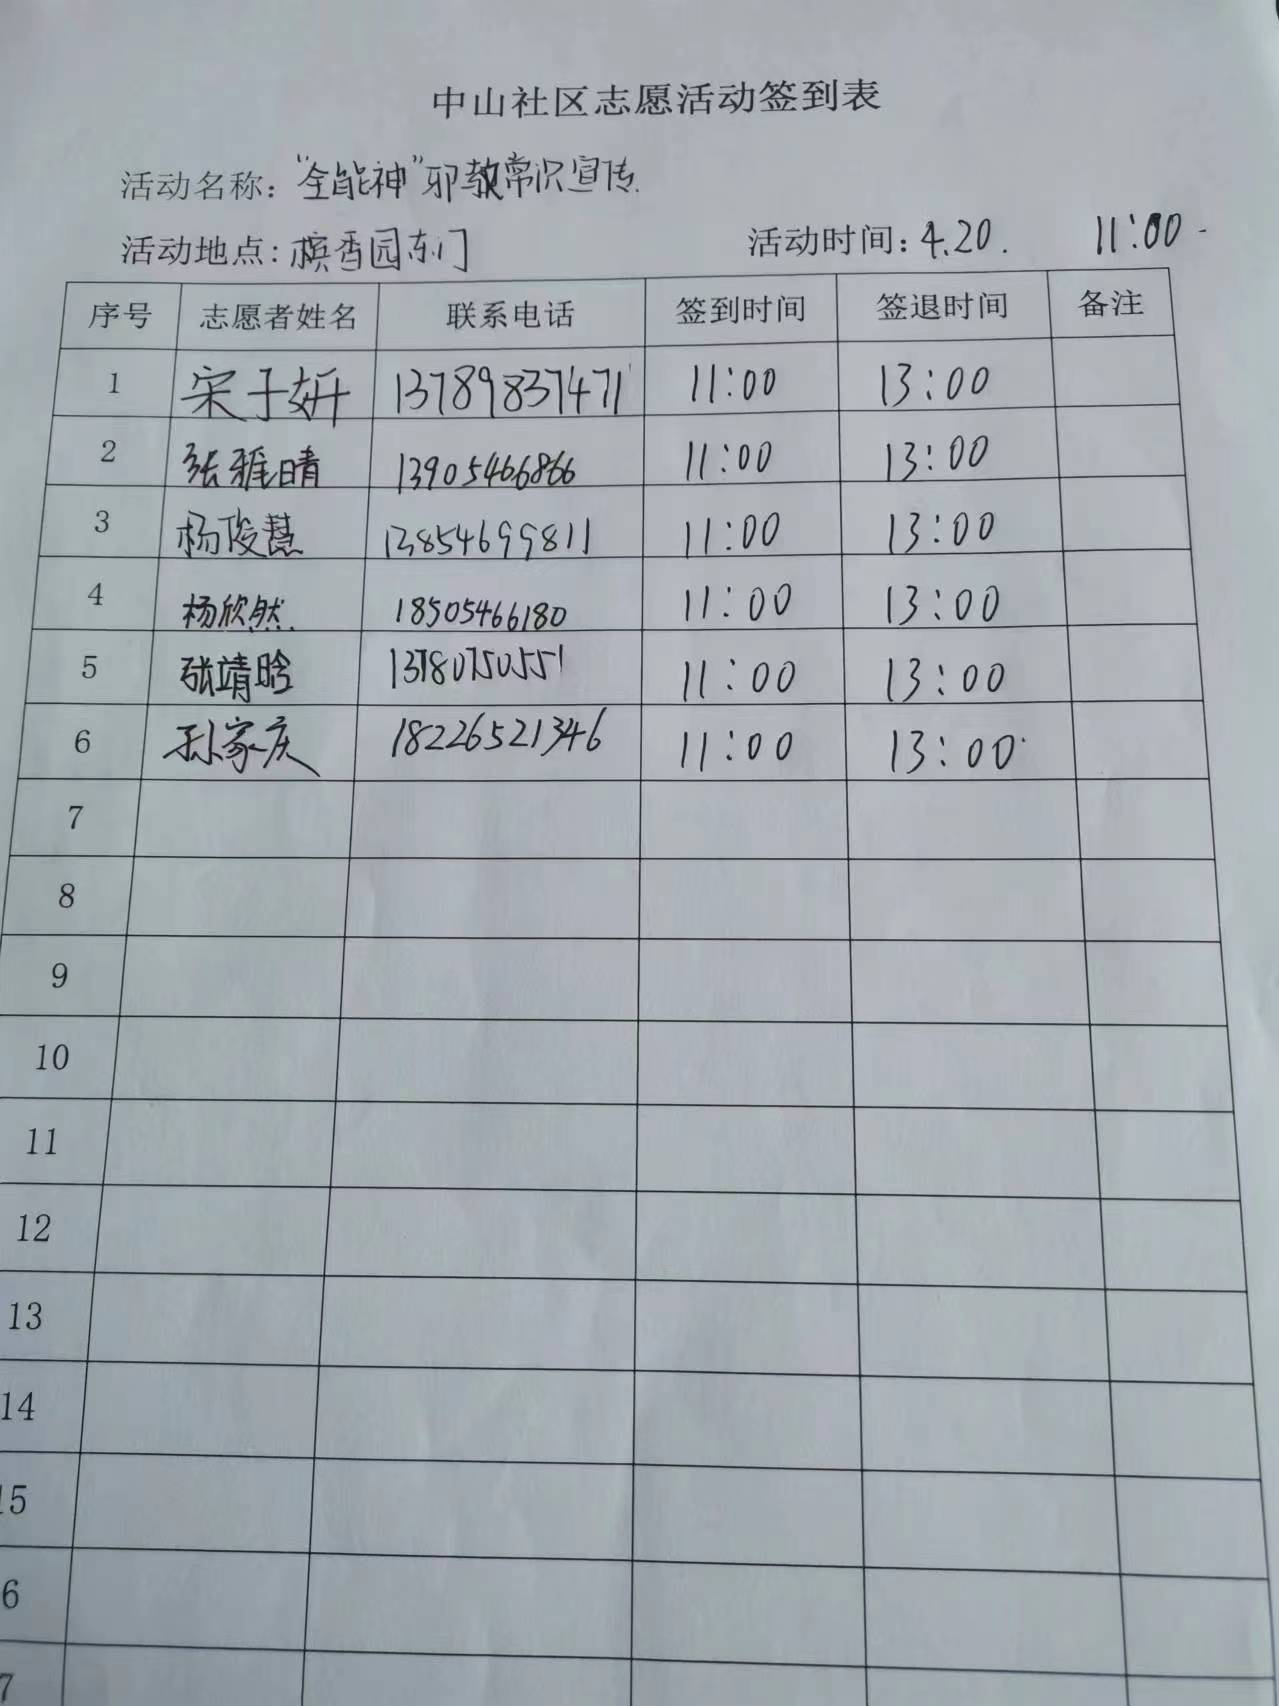 中山社区志愿活动签到表
活动名称："全能神"邪教常识宣传.
活动地点：槟香园东门 活动时间：4.20. 11:00-
序号 志愿者姓名 联系电话 签到时间 签退时间 备注
1 宋子妍 13789837471 11:00 13:00
2 张雅晴 13905466866 11:00 13:00
3 杨俊慧 13854699811 11:00 13:00
4 杨欣然 18505466180 11:00 13:00
5 张靖晗 13780750551 11:00 13:00
6 孙家庆 18226521346 11:00 13:00
7
8
9
10
11
12
13
14
15
6
7